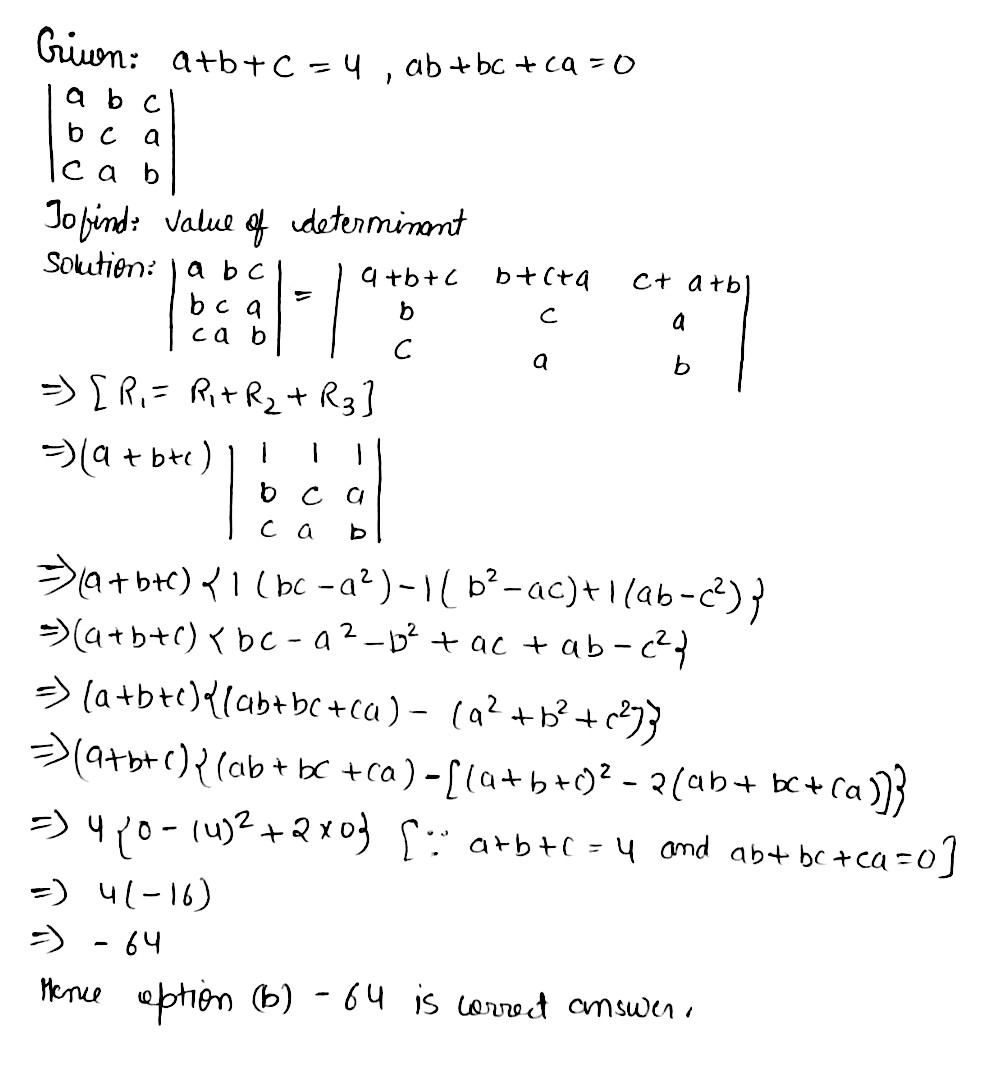 Given: a+b+c = 4 , ab+bc+ca = 0
| a b c |
| b c a |
| c a b |
To find: value of determinant
Solution: | a b c | = | a+b+c b+c+a c+a+b |
| b c a | | b c a |
| c a b | | c a b |
=> [R₁ = R₁+R₂+R₃]
=> (a+b+c) | 1 1 1 |
| b c a |
| c a b |
=> (a+b+c) {1(bc-a²)-1(b²-ac)+1(ab-c²)}
=> (a+b+c) {bc-a²-b²+ac+ab-c²}
=> (a+b+c){(ab+bc+ca) - (a²+b²+c²)}
=> (a+b+c){(ab+bc+ca)-[(a+b+c)²-2(ab+bc+ca)]}
=> 4{0-(4)²+2×0} [∵ a+b+c = 4 and ab+bc+ca=0]
=> 4(-16)
=> -64
Hence option (b) -64 is correct answer.